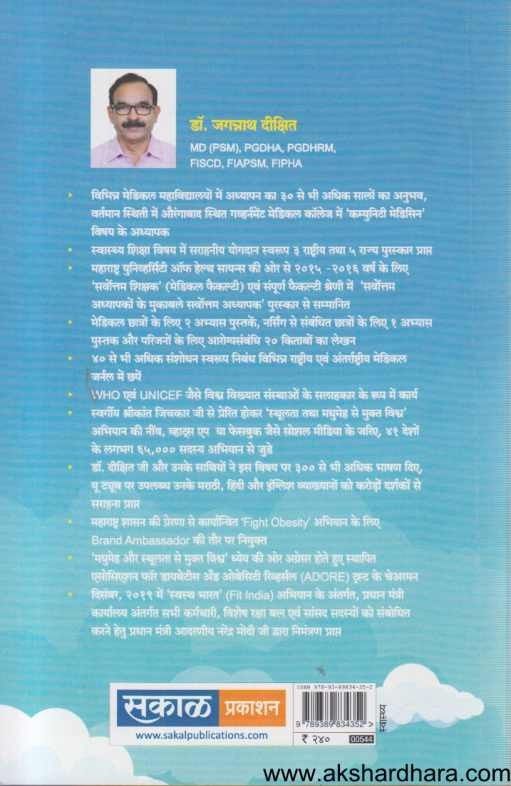 डॉ. जगन्नाथ दीक्षित
MD (PSM), PGDHA, PGDHRM,
FISCD, FIAPSM, FIPHA
• विभिन्न मेडिकल महाविद्यालयों में अध्यापन का ३० से भी अधिक सालों का अनुभव,
वर्तमान स्थिती में औरंगाबाद स्थित गव्हर्नमेंट मेडिकल कॉलेज में 'कम्युनिटी मेडिसिन'
विषय के अध्यापक
• स्वास्थ्य शिक्षा विषय में सराहनीय योगदान स्वरूप ३ राष्ट्रीय तथा ५ राज्य पुरस्कार प्राप्त
• महाराष्ट्र युनिव्हर्सिटी ऑफ हेल्थ सायन्स की ओर से २०१५ -२०१६ वर्ष के लिए
'सर्वोत्तम शिक्षक' (मेडिकल फैकल्टी) एवं संपूर्ण फैकल्टी श्रेणी में 'सर्वोत्तम
अध्यापकों के मुकाबले सर्वोत्तम अध्यापक' पुरस्कार से सम्मानित
• मेडिकल छात्रों के लिए २ अभ्यास पुस्तकें, नर्सिंग से संबंधित छात्रों के लिए १ अभ्यास
पुस्तक और परिजनों के लिए आरोग्यसंबंधि २० किताबों का लेखन
• ४० से भी अधिक संशोधन स्वरूप निबंध विभिन्न राष्ट्रीय एवं अंतर्राष्ट्रीय मेडिकल
जर्नल में छपें
• WHO एवं UNICEF जैसे विश्व विख्यात संस्थाओं के सलाहकार के रूप में कार्य
• स्वर्गीय श्रीकांत जिचकार जी से प्रेरित होकर 'स्थूलता तथा मधुमेह से मुक्त विश्व'
अभियान की नींव, व्हाट्स एप या फेसबुक जैसे सोशल मीडिया के जरिए, ४१ देशों
के लगभग ६५,००० सदस्य अभियान से जुडे
• डॉ. दीक्षित जी और उनके साथियों ने इस विषय पर ३०० से भी अधिक भाषण दिए,
यू ट्यूब पर उपलब्ध उनके मराठी, हिंदी और इंग्लिश व्याख्यानों को करोड़ों दर्शकों से
सराहना प्राप्त
• महाराष्ट्र शासन की प्रेरणा से कार्यान्वित 'Fight Obesity' अभियान के लिए
Brand Ambassador की तौर पर नियुक्त
• 'मधुमेह और स्थूलता से मुक्त विश्व' ध्येय की ओर अग्रेसर होते हुए स्थापित
एसोसिएशन फॉर डायबेटीस अँड ओबेसिटी रिव्हर्सल (ADORE) ट्रस्ट के चेअरमन
• दिसंबर, २०१९ में 'स्वस्थ भारत' (Fit India) अभियान के अंतर्गत, प्रधान मंत्री
कार्यालय अंतर्गत सभी कर्मचारी, विशेष रक्षा बल एवं सांसद सदस्यों को संबोधित
करने हेतु प्रधान मंत्री आदरणीय नरेंद्र मोदी जी द्वारा निमंत्रण प्राप्त
सकाळ प्रकाशन
www.sakalpublications.com
ISBN 978-93-89834-35-2
9 789389 834352 >
₹ २४० 00544
स्वास्थ्य
www.akshardhara.com